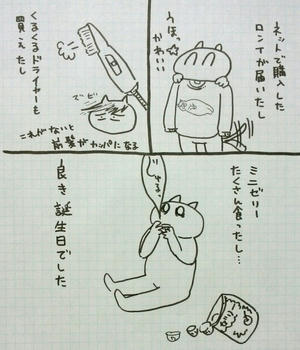 ネットで購入した
ロンTが届いたし
うほっ
かわいい
くるくるドライヤーも
買えたし
これがないと
前髪がカッパになる
ミニゼリー
たくさん食ったし…
良き誕生日でした